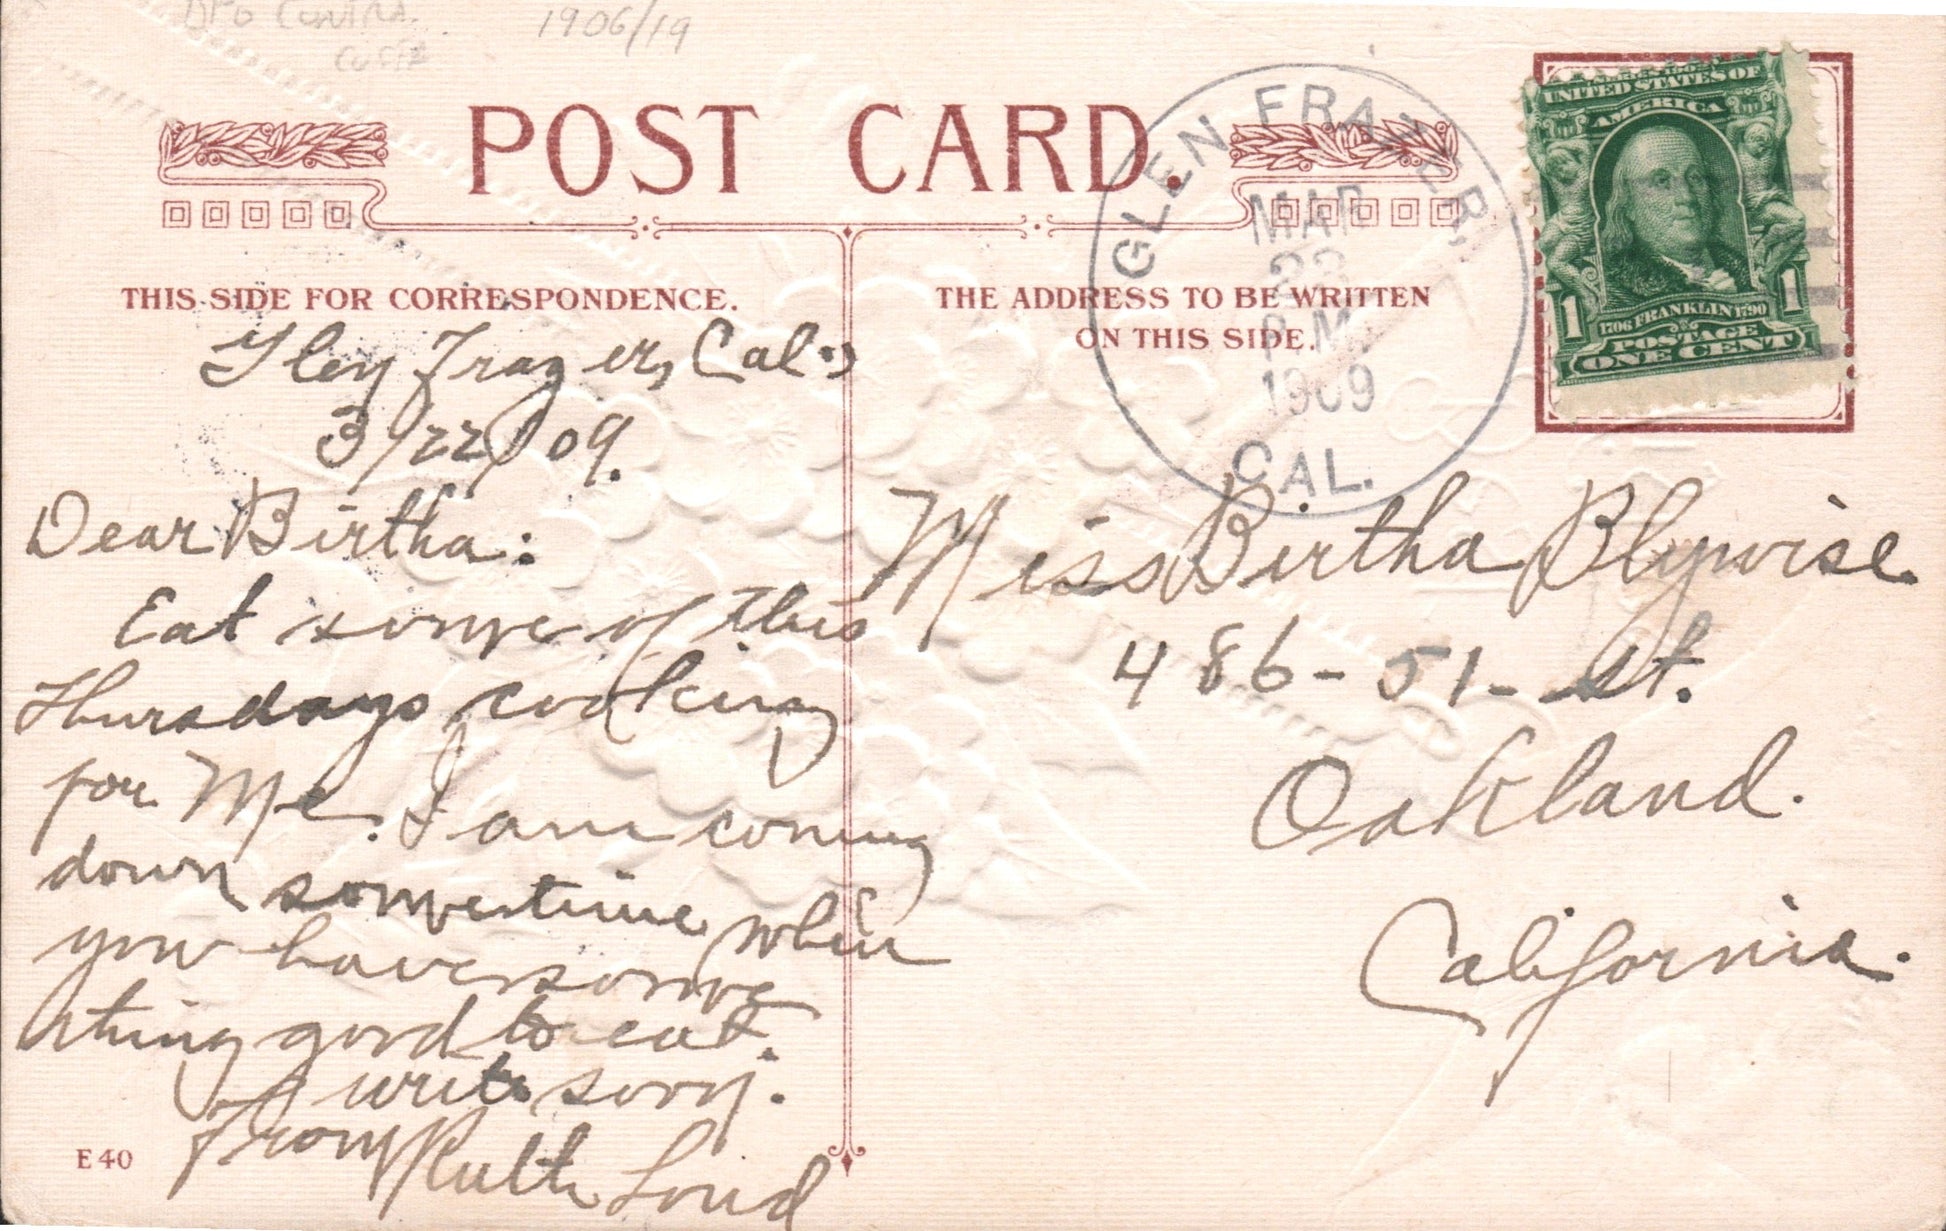 DPO Contra
Costa
1906/19
POST CARD.
GLEN FRAZER,
MAR
23
P.M.
1909
CAL.
UNITED STATES OF
AMERICA
1 1
1706 FRANKLIN 1790
POSTAGE
ONE CENT
THIS SIDE FOR CORRESPONDENCE.
Glen Frazer, Cal.,
3/22/09.
Dear Birtha:
Eat some of this
Thursdays cooking
for Me. I am coming
down sometime when
you have some
thing good to eat.
write soon.
From Ruth Loud
E40
THE ADDRESS TO BE WRITTEN
ON THIS SIDE.
Miss Birtha Blywise
486-51-st.
Oakland.
California.